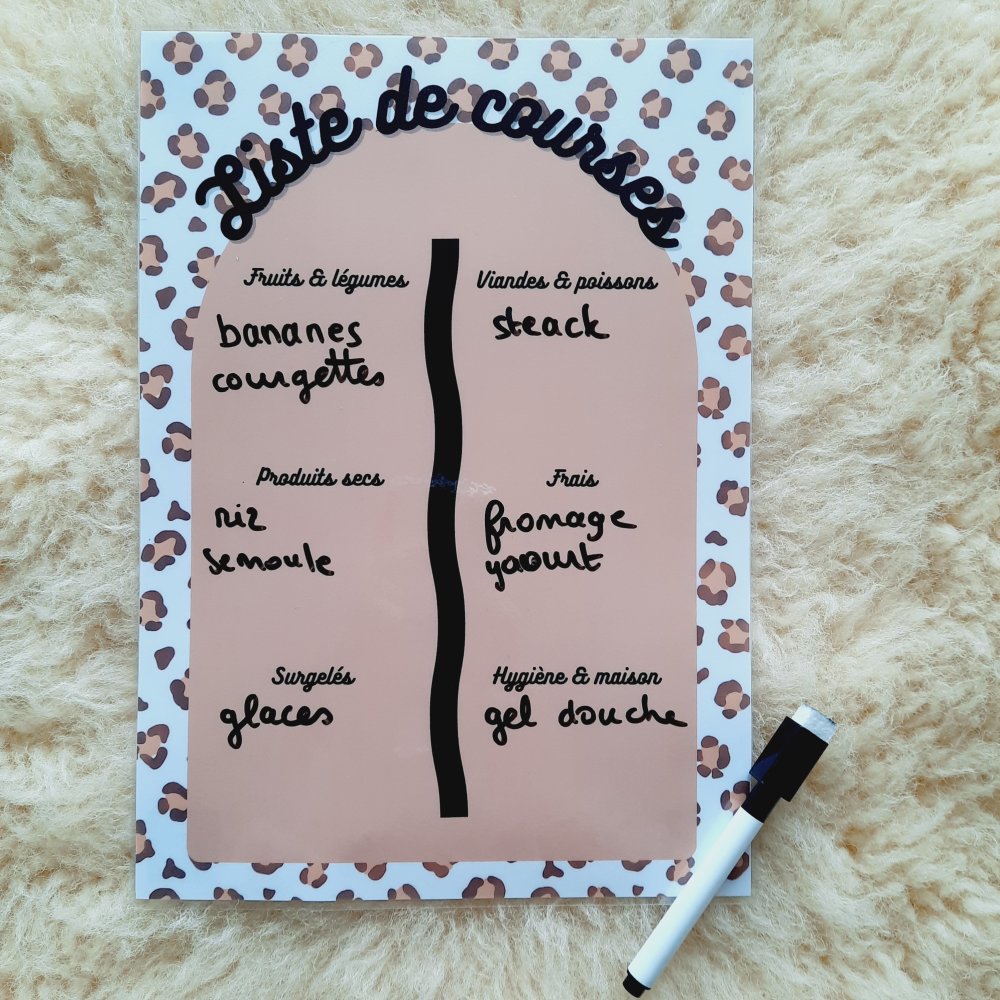 Liste de courses
Fruits & légumes
bananes
courgettes
Viandes & poissons
steack
Produits secs
riz
semoule
Frais
fromage
yaourt
Surgelés
glaces
Hygiène & maison
gel douche